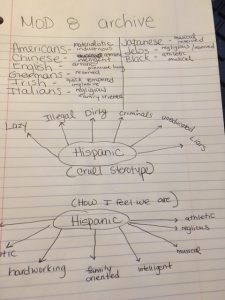 MOD 8 archive
Americans - materialistic
industrious
Chinese - intelligent
English - artistic
Germans - reserved
Irish - quick tempered
Italians - religious
family oriented
Japanese - musical
reserved
Jews - religious
Black - athletic
musical
Lazy
Illegal
Dirty
Criminals
uneducated
Liars
Hispanic
(cruel sterotype)
(How I feel we are)
Hispanic
athletic
religious
musical
intelligent
family
oriented
hardworking
tic